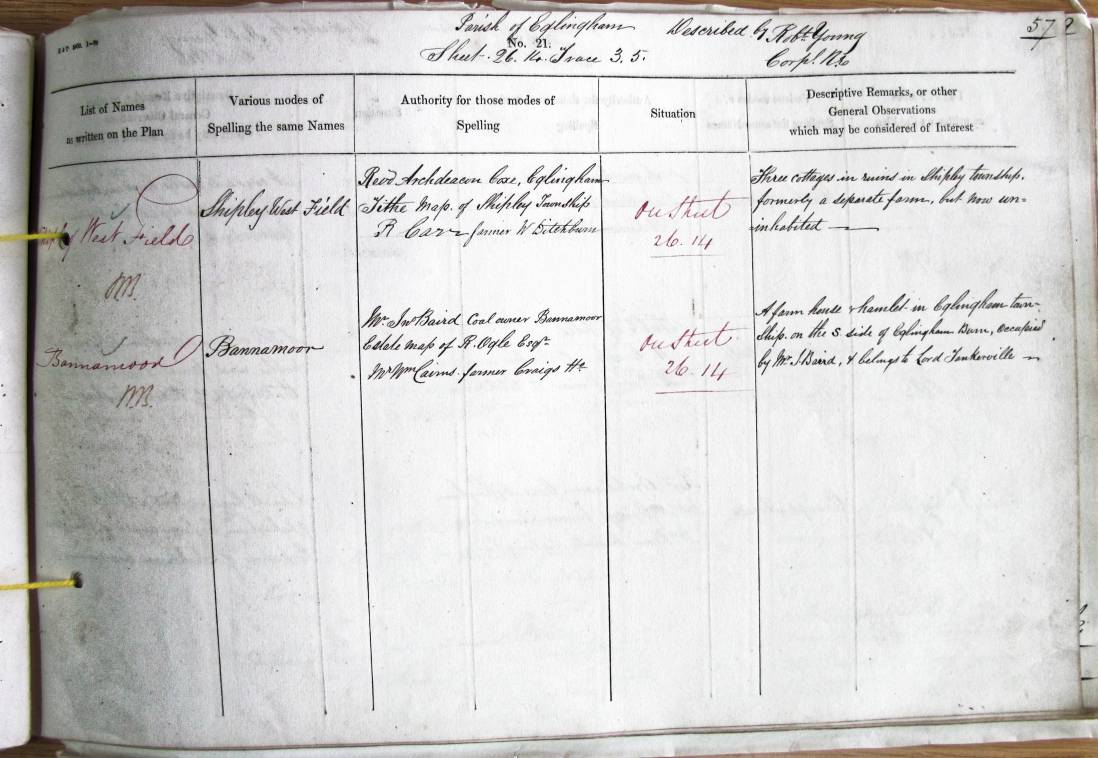 Parish of Eglingham
Described by Robt Young
57
No. 21.
Sheet. 26. No. Trace 3. 5.
Corpl. R.E
List of Names
as written on the Plan
Various modes of
Spelling the same Names
Authority for those modes of
Spelling
Situation
Descriptive Remarks, or other
General Observations
which may be considered of Interest
West Field
Shipley West Field
Revd Archdeacon Coxe, Eglingham
Tithe Map. of Shipley Township
R Carr farmer W Ditchburn
On Sheet
26. 14
Three cottages in ruins in Shipley township.
formerly a seperate farm, but now un-
inhabited
Bannamoor
Bannamoor
Mr Jno Baird Coal owner Bannamoor
Estate map of R. Ogle Esqr
Mr Wm Cairns. farmer Craigs Ho.
On Sheet
26. 14
A farm house & hamlet in Eglingham town-
ship. on the S. side of Eglingham Burn, occupied
by Mr. J. Baird, & belongs to Lord Tankerville